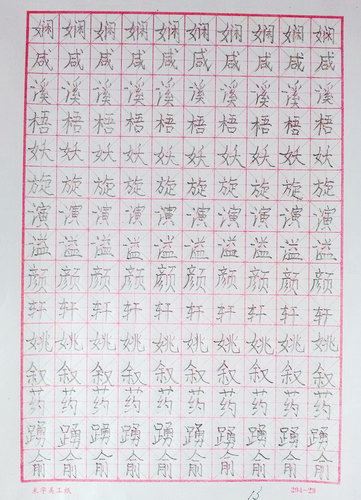 娴娴娴娴娴娴娴娴娴娴
咸咸咸咸咸咸咸咸咸咸
溪溪溪溪溪溪溪溪溪溪
梧梧梧梧梧梧梧梧梧梧
妖妖妖妖妖妖妖妖妖妖
旋旋旋旋旋旋旋旋旋旋
演演演演演演演演演演
溢溢溢溢溢溢溢溢溢溢
颜颜颜颜颜颜颜颜颜颜
轩轩轩轩轩轩轩轩轩轩
姚姚姚姚姚姚姚姚姚姚
叙叙叙叙叙叙叙叙叙叙
药药药药药药药药药药
踊踊踊踊踊踊踊踊踊踊
俞俞俞俞俞俞俞俞俞俞
294-29